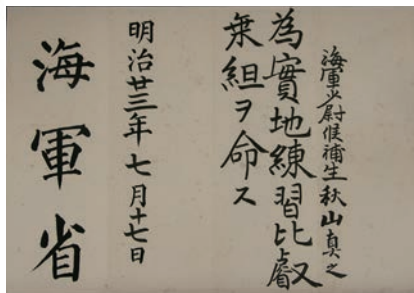 海軍少尉候補生秋山真之
為實地練習比叡
乗組ヲ命ス
明治廿三年七月十七日
海軍省